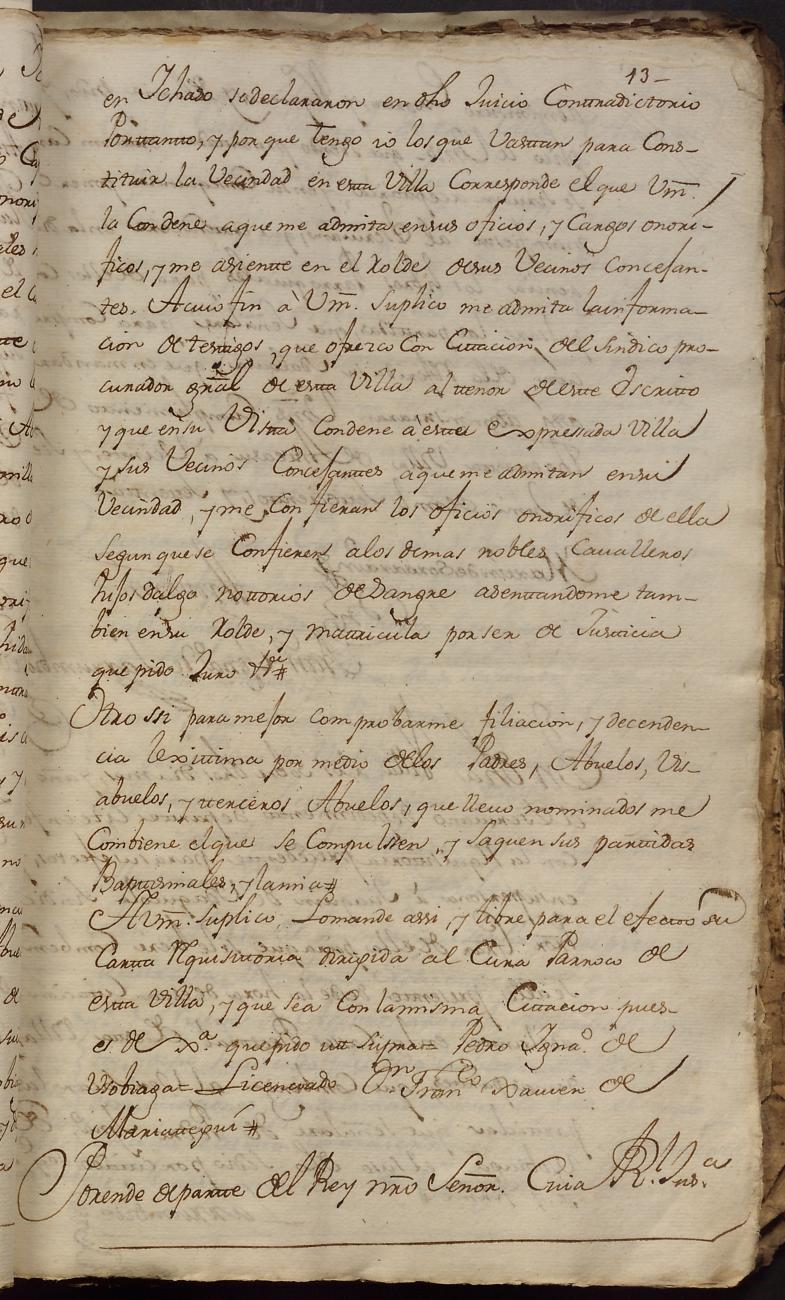 13-
en Ichaso se declararon en dho Juicio Conttradictorio
Porttantto, y por que tengo io los que vasttan para Cons-
tituir la Vecindad en estta Villa Corresponde el que Vm.
la Condene a que me admita en sus oficios, y Cargos onori-
ficos, y me asientte en el Rolde de sus Vecinos Concejan-
tes. A cuio fin â Vm. suplico me admita la informa-
cion de testigos, que ofrezco Con Cittacion del sindico pro-
curador grãl de estta Villa al tenor de estte Escritto
y que en su Vistta Condene â estta Expressada Villa
y sus Vecinos Concejanttes a que me admitan en su
Vecindad, y me Confieran los oficios onorificos de ella
segun que se Confieren a los demas nobles Cavalleros
hijos dalgo nottorios de sangre asenttandome tam-
bien en su Rolde, y mattricula por ser de Justticia
que pido Juro &ª #
Otro ssi para mejor comprobar me filiacion, y decenden-
cia lexittima por medio de los Padres, Abuelos, Vis-
abuelos, y tterceros Abuelos, que llevo nominados me
Combiene el que se Compulsen, y saquen sus partidas
Bapttismales, y la mia #
A Vm. suplico Lo mande assi, y libre para el efectto su
Cartta Rquisittoria dirijida al Cura Parroco de
estta Villa, y que sea Con la misma Cittacion pues
es de Xª. que pido utt supra = Pedro Ignaº. de
= Licenciado Dn. Franco. Xavier de
Mariattegui #
Porende de partte del Rey nrõ Señor. Cuia Rl. Jusª